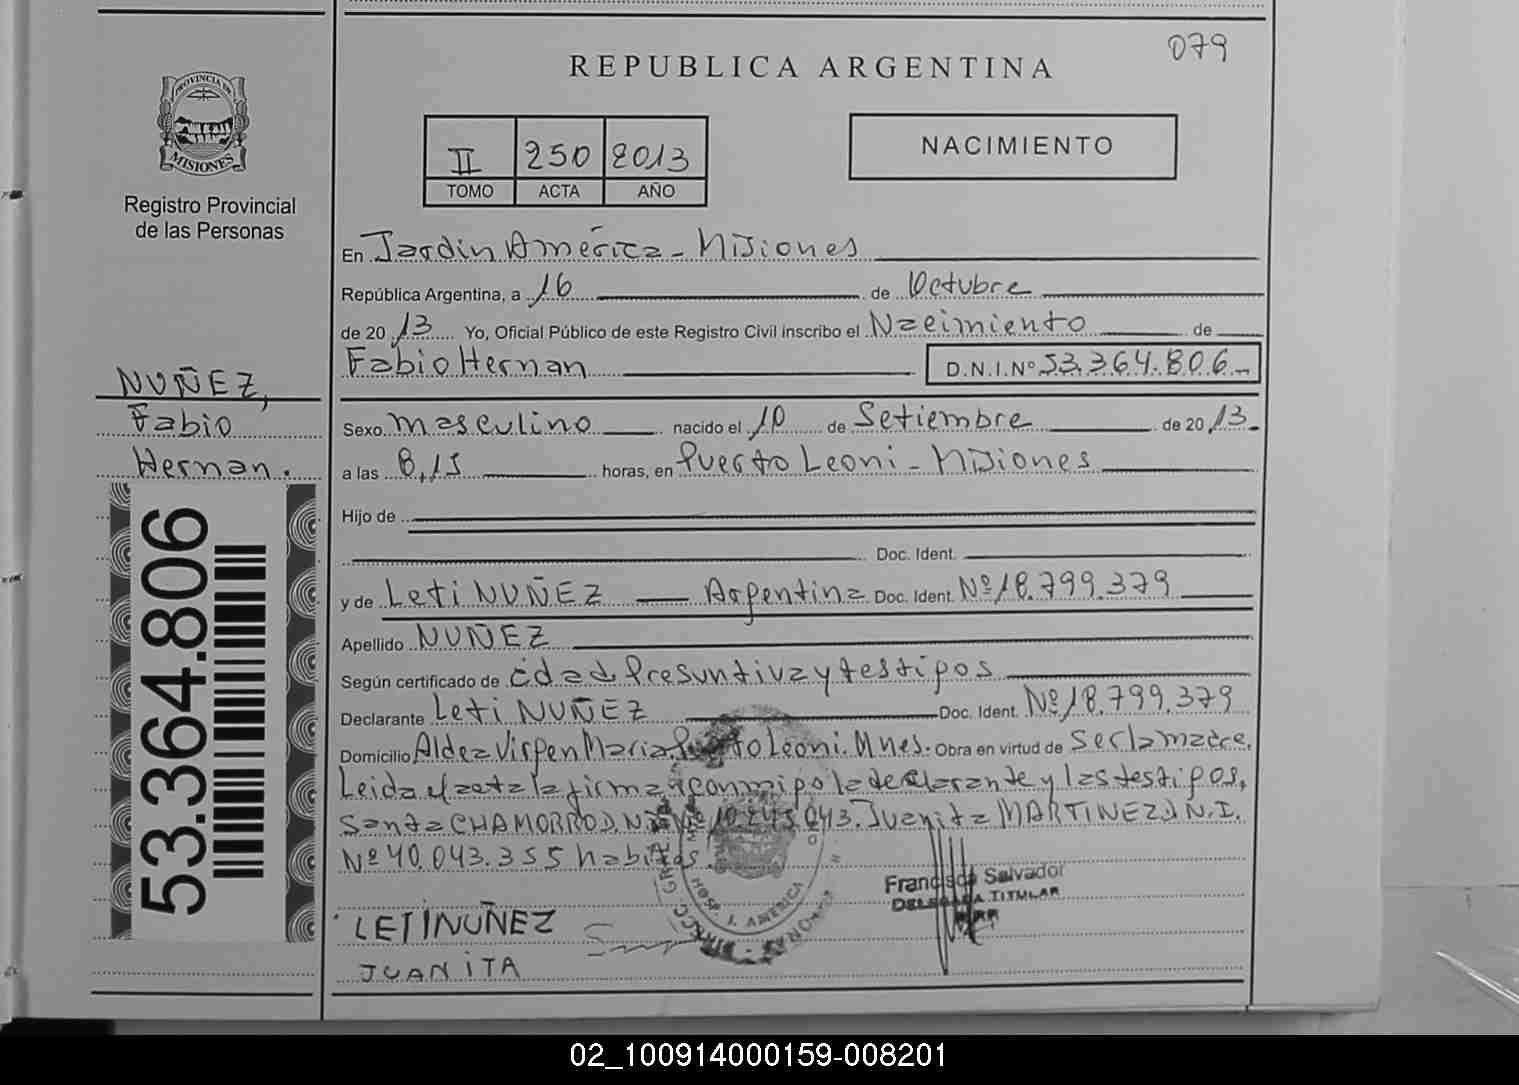 079
REPUBLICA ARGENTINA
PROVINCIA DE
MISIONES
Registro Provincial
de las Personas
II 250 2013
TOMO ACTA AÑO
NACIMIENTO
En Jardin América - Misiones
República Argentina, a 16 de Octubre
de 2013 Yo, Oficial Público de este Registro Civil inscribo el Nacimiento de
Fabio Hernan D.N.I.Nº 53.364.806
NUÑEZ,
Fabio
Hernan.
Sexo masculino nacido el 10 de Setiembre de 2013
a las 8,15 horas, en Puerto Leoni - Misiones
Hijo de
Doc. Ident.
y de Leti NUÑEZ Argentina Doc. Ident. Nº 18.799.379
Apellido NUÑEZ
Según certificado de edad Presuntiva y testigos
Declarante Leti NUÑEZ Doc. Ident. Nº 18.799.379
Domicilio Aldea Virgen Maria Puerto Leoni. Mnes. Obra en virtud de ser la madre.
Leida el acta la firma conmigo la declarante y las testigos,
Santa CHAMORRO D.N.I. Nº 10.245.043. Juanita MARTINEZ D.N.I.
Nº 40.043.355 habiles.
53.364.806
HOSP. J. AMERICA
Francisca Salvador
DELEGADA TITULAR
LETI NUÑEZ
JUANITA
02_100914000159-008201